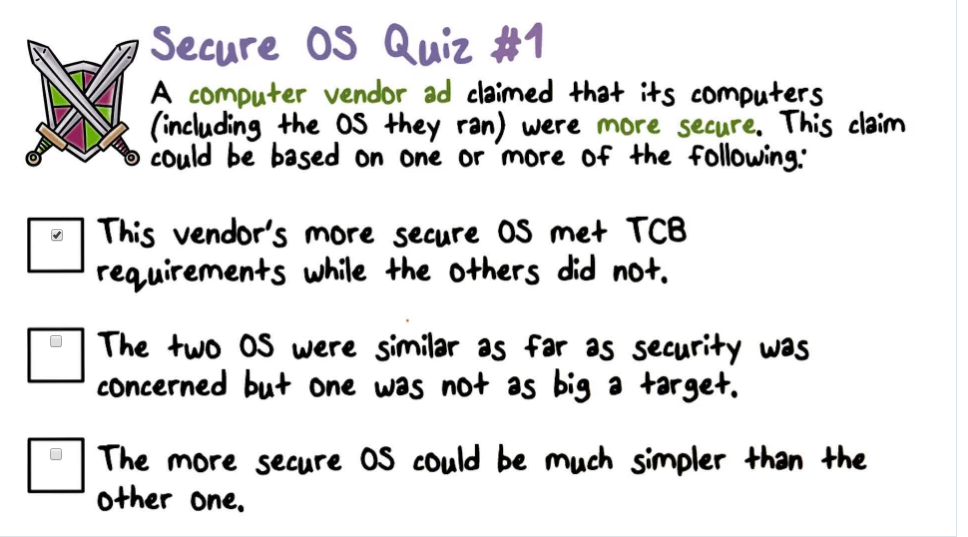 Secure OS Quiz #1
A computer vendor ad claimed that its computers
(including the OS they ran) were more secure. This claim
could be based on one or more of the following:
This vendor's more secure OS met TCB
requirements while the others did not.
The two OS were similar as far as security was
concerned but one was not as big a target.
The more secure OS could be much simpler than the
other one.